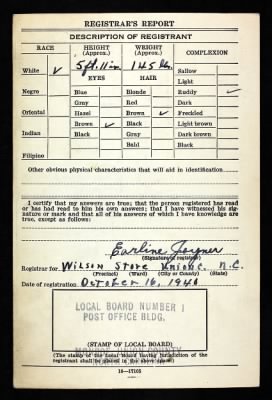 REGISTRAR'S REPORT
DESCRIPTION OF REGISTRANT
RACE HEIGHT (Approx.) WEIGHT (Approx.) COMPLEXION
White ✓ 5 ft. 11 in. 145 lbs. Sallow
EYES HAIR Light
Negro Blue Blonde Ruddy ✓
Gray Red Dark
Oriental Hazel Brown ✓ Freckled
Brown ✓ Black Light brown
Indian Black Gray Dark brown
Bald Black
Filipino
Other obvious physical characteristics that will aid in identification
I certify that my answers are true; that the person registered has read
or has had read to him his own answers; that I have witnessed his sig-
nature or mark and that all of his answers of which I have knowledge
are true, except as follows:
Earline Joyner
(Signature of registrar)
Registrar for Wilson Store Union C. N.C.
(Precinct) (Ward) (City or County) (State)
Date of registration October 16, 1940
LOCAL BOARD NUMBER 1
POST OFFICE BLDG.
(STAMP OF LOCAL BOARD)
MONROE, UNION COUNTY
(The stamp of the Local Board having jurisdiction of the
registrant shall be placed in the above space.)
16—17105